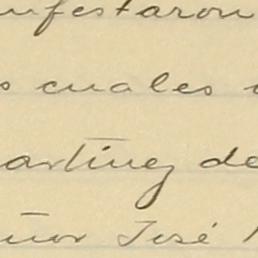 nifestaron
s cuales
artinez de
ñor José